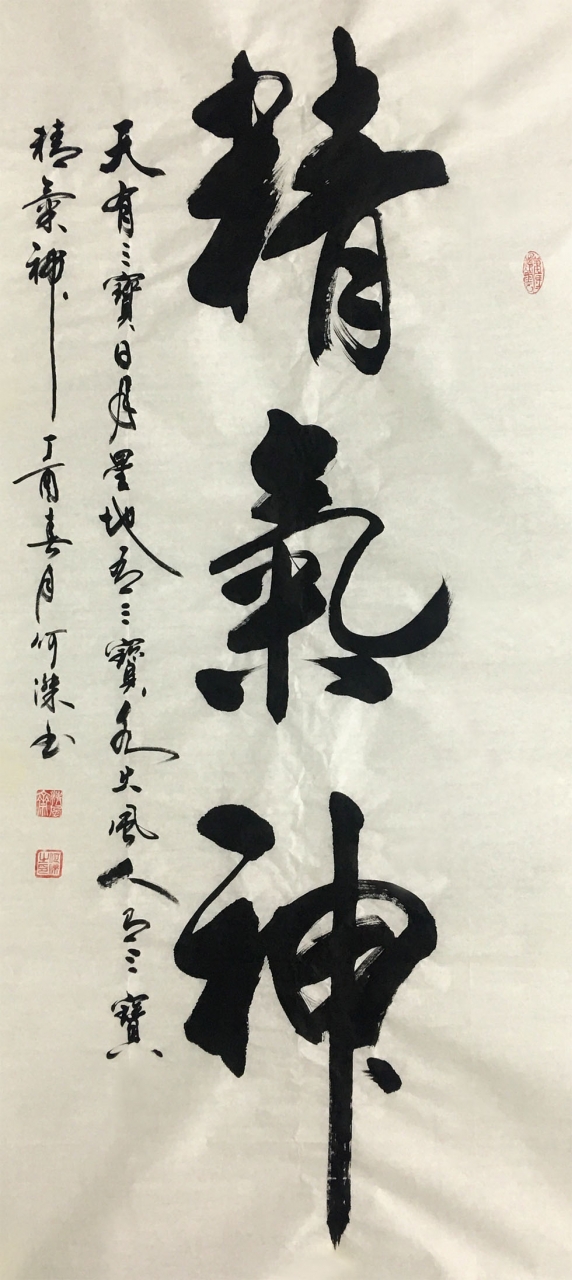 精氣神
天有三寶日月星地有三寶水火風人有三寶
精氣神丁酉春月何潔書